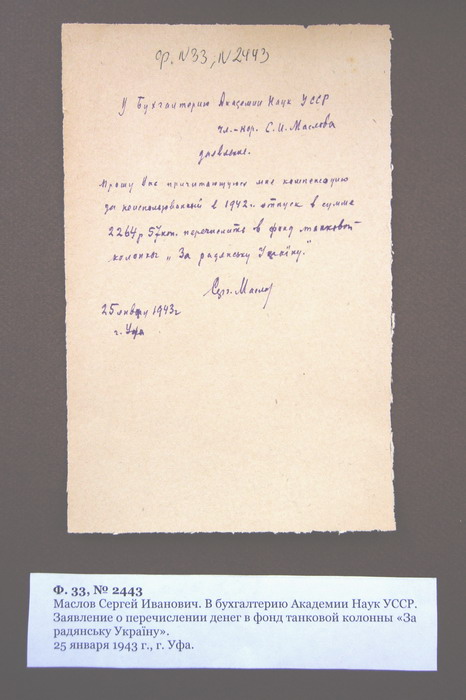 Ф. N33, N2443
У Бухгалтерию Академии Наук УССР
чл.-кор. С.И. Маслова
заявление.
Прошу Вас причитающуюся мне компенсацию
за неиспользованный в 1942 г. отпуск в сумме
2264 р 57 коп. перечислить в фонд танковой
колонны „За радянську Україну."
Серг. Маслов
25 января 1943 г
г. Уфа
Ф. 33, № 2443
Маслов Сергей Иванович. В бухгалтерию Академии Наук УССР.
Заявление о перечислении денег в фонд танковой колонны «За
радянську Україну».
25 января 1943 г., г. Уфа.